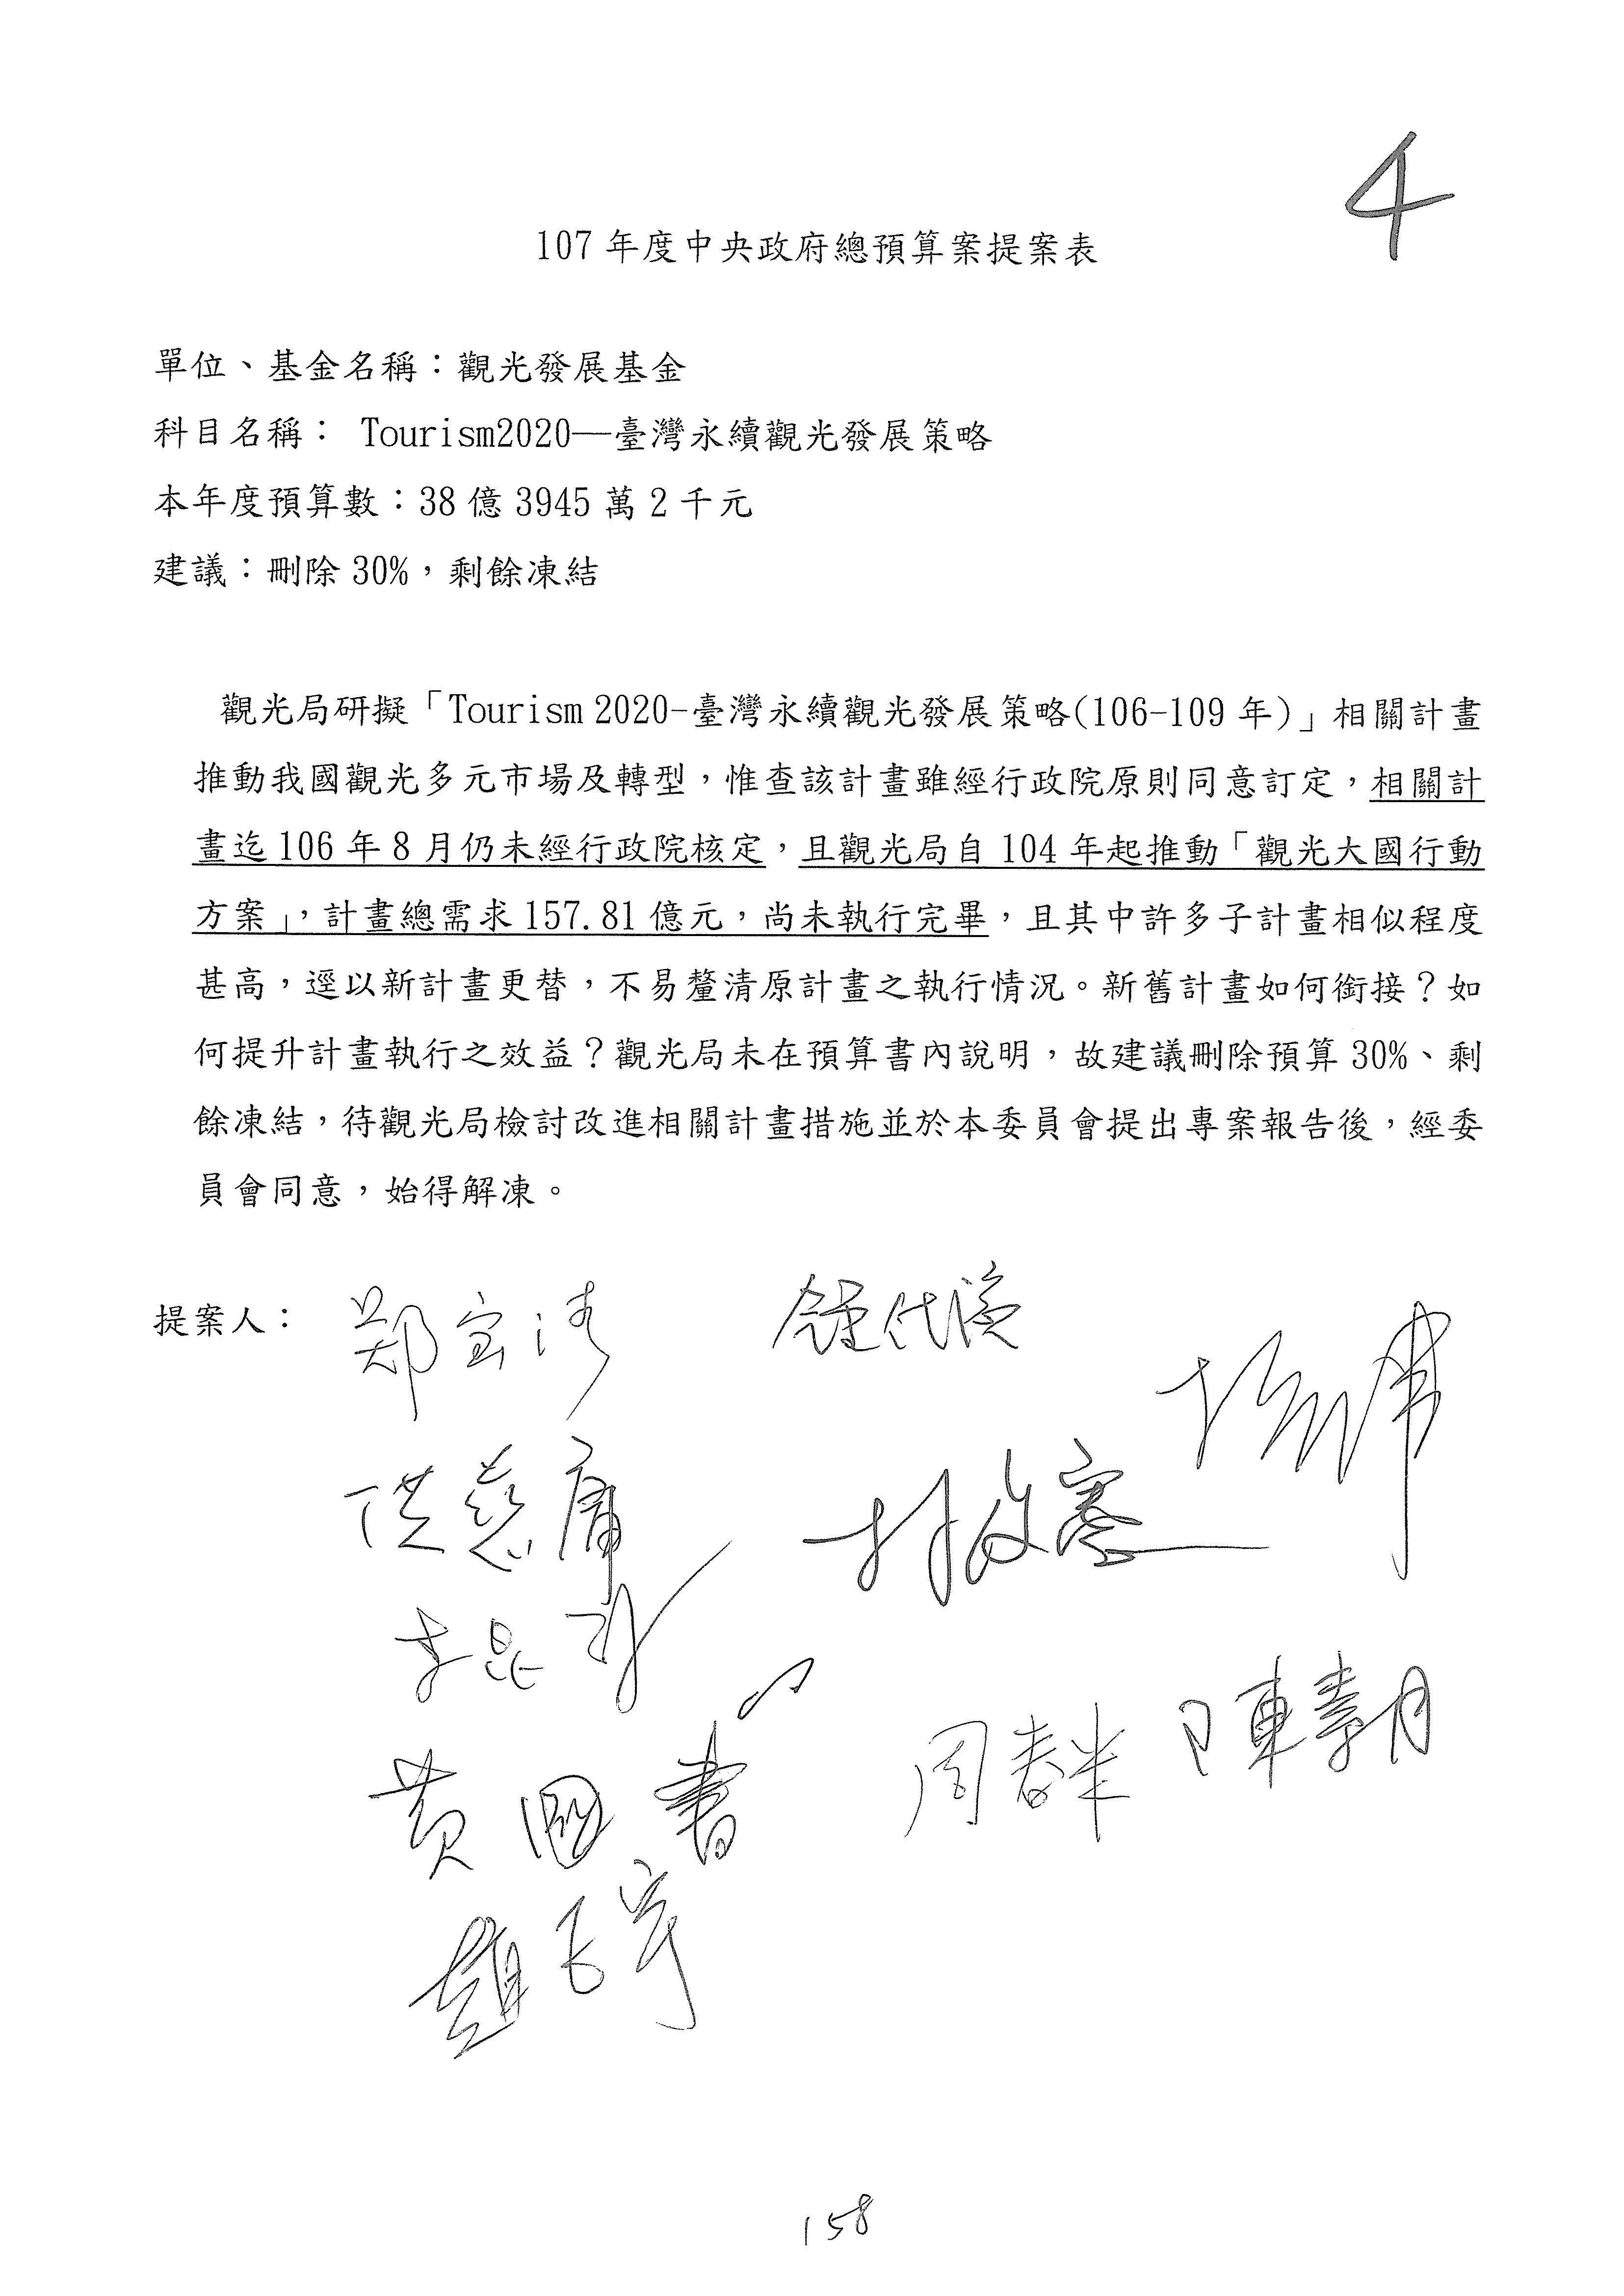 4
107 年度中央政府總預算案提案表
單位、基金名稱：觀光發展基金
科目名稱： Tourism2020—臺灣永續觀光發展策略
本年度預算數：38 億 3945 萬 2 千元
建議：刪除 30%，剩餘凍結
觀光局研擬「Tourism 2020-臺灣永續觀光發展策略(106-109 年)」相關計畫
推動我國觀光多元市場及轉型，惟查該計畫雖經行政院原則同意訂定，相關計
畫迄 106 年 8 月仍未經行政院核定，且觀光局自 104 年起推動「觀光大國行動
方案」，計畫總需求 157.81 億元，尚未執行完畢，且其中許多子計畫相似程度
甚高，逕以新計畫更替，不易釐清原計畫之執行情況。新舊計畫如何銜接？如
何提升計畫執行之效益？觀光局未在預算書內說明，故建議刪除預算 30%、剩
餘凍結，待觀光局檢討改進相關計畫措施並於本委員會提出專案報告後，經委
員會同意，始得解凍。
提案人： 鄭宝清
洪慈庸
李昆
黃國書
周春米 陳素月
趙正宇
158